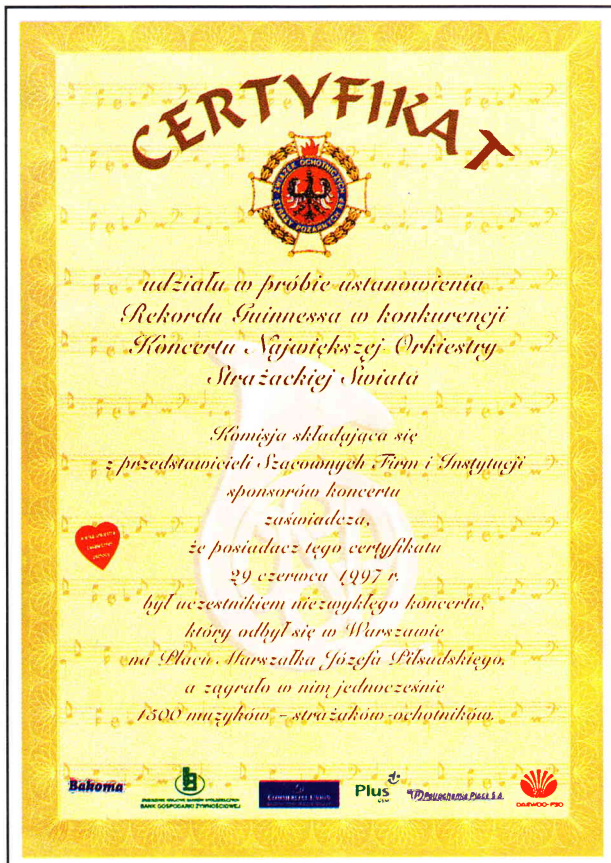 CERTYFIKAT
ZWIĄZEK OCHOTNICZYCH
STRAŻY POŻARNYCH RP
udziału w próbie ustanowienia
Rekordu Guinnessa w konkurencji
Koncertu Największej Orkiestry
Strażackiej Świata
Komisja składająca się
z przedstawicieli Szacownych Firm i Instytucji
sponsorów koncertu
zaświadcza,
że posiadacz tego certyfikatu
29 czerwca 1997 r.
był uczestnikiem niezwykłego koncertu,
który odbył się w Warszawie
na Placu Marszałka Józefa Piłsudskiego,
a zagrało w nim jednocześnie
1500 muzyków - strażaków-ochotników.
Bakoma
BANK GOSPODARKI ŻYWNOŚCIOWEJ
COMMERCIAL UNION
Plus
GSM
Petrochemia Płock S.A.
DAEWOO-FSO